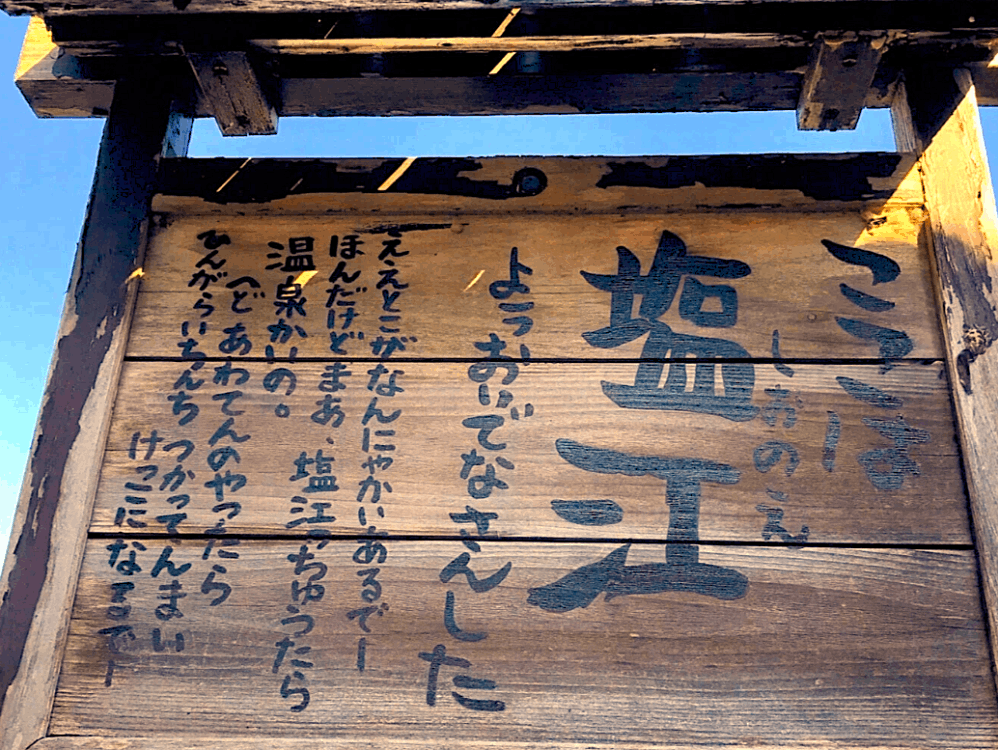 ここは
しおのえ
塩江
ようおいでなさんした
ええとこがなんにゃかいあるでー
ほんだけどまあ、塩江っちゅうたら
温泉かいの。
へどあわてんのやったら
ひんがらいちんちつかってんまい
けっこになるでー